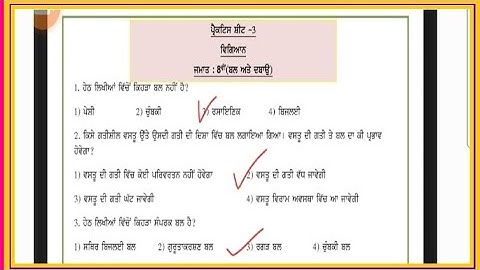 ਪ੍ਰੈਕਟਿਸ ਸ਼ੀਟ -3
ਵਿਗਿਆਨ
ਜਮਾਤ : 8ਵੀਂ(ਬਲ ਅਤੇ ਦਬਾਉ)
1. ਹੇਠ ਲਿਖੀਆਂ ਵਿੱਚੋਂ ਕਿਹੜਾ ਬਲ ਨਹੀਂ ਹੈ?
1) ਪੇਸ਼ੀ 2) ਚੁੰਬਕੀ 3) ਰਸਾਇਣਿਕ 4) ਬਿਜਲਈ
2. ਕਿਸੇ ਗਤੀਸ਼ੀਲ ਵਸਤੂ ਉੱਤੇ ਉਸਦੀ ਗਤੀ ਦੀ ਦਿਸ਼ਾ ਵਿੱਚ ਬਲ ਲਗਾਇਆ ਗਿਆ। ਵਸਤੂ ਦੀ ਗਤੀ ਤੇ ਬਲ ਦਾ ਕੀ ਪ੍ਰਭਾਵ
ਹੋਵੇਗਾ?
1) ਵਸਤੂ ਦੀ ਗਤੀ ਵਿੱਚ ਕੋਈ ਪਰਿਵਰਤਨ ਨਹੀਂ ਹੋਵੇਗਾ 2) ਵਸਤੂ ਦੀ ਗਤੀ ਵੱਧ ਜਾਵੇਗੀ
3) ਵਸਤੂ ਦੀ ਗਤੀ ਘੱਟ ਜਾਵੇਗੀ 4) ਵਸਤੂ ਵਿਰਾਮ ਅਵਸਥਾ ਵਿੱਚ ਆ ਜਾਵੇਗੀ
3. ਹੇਠ ਲਿਖੀਆਂ ਵਿੱਚੋਂ ਕਿਹੜਾ ਸੰਪਰਕ ਬਲ ਹੈ?
1) ਸਥਿਰ ਬਿਜਲਈ ਬਲ 2) ਗੁਰੂਤਾਕਰਸ਼ਣ ਬਲ 3) ਰਗੜ ਬਲ 4) ਚੁੰਬਕੀ ਬਲ